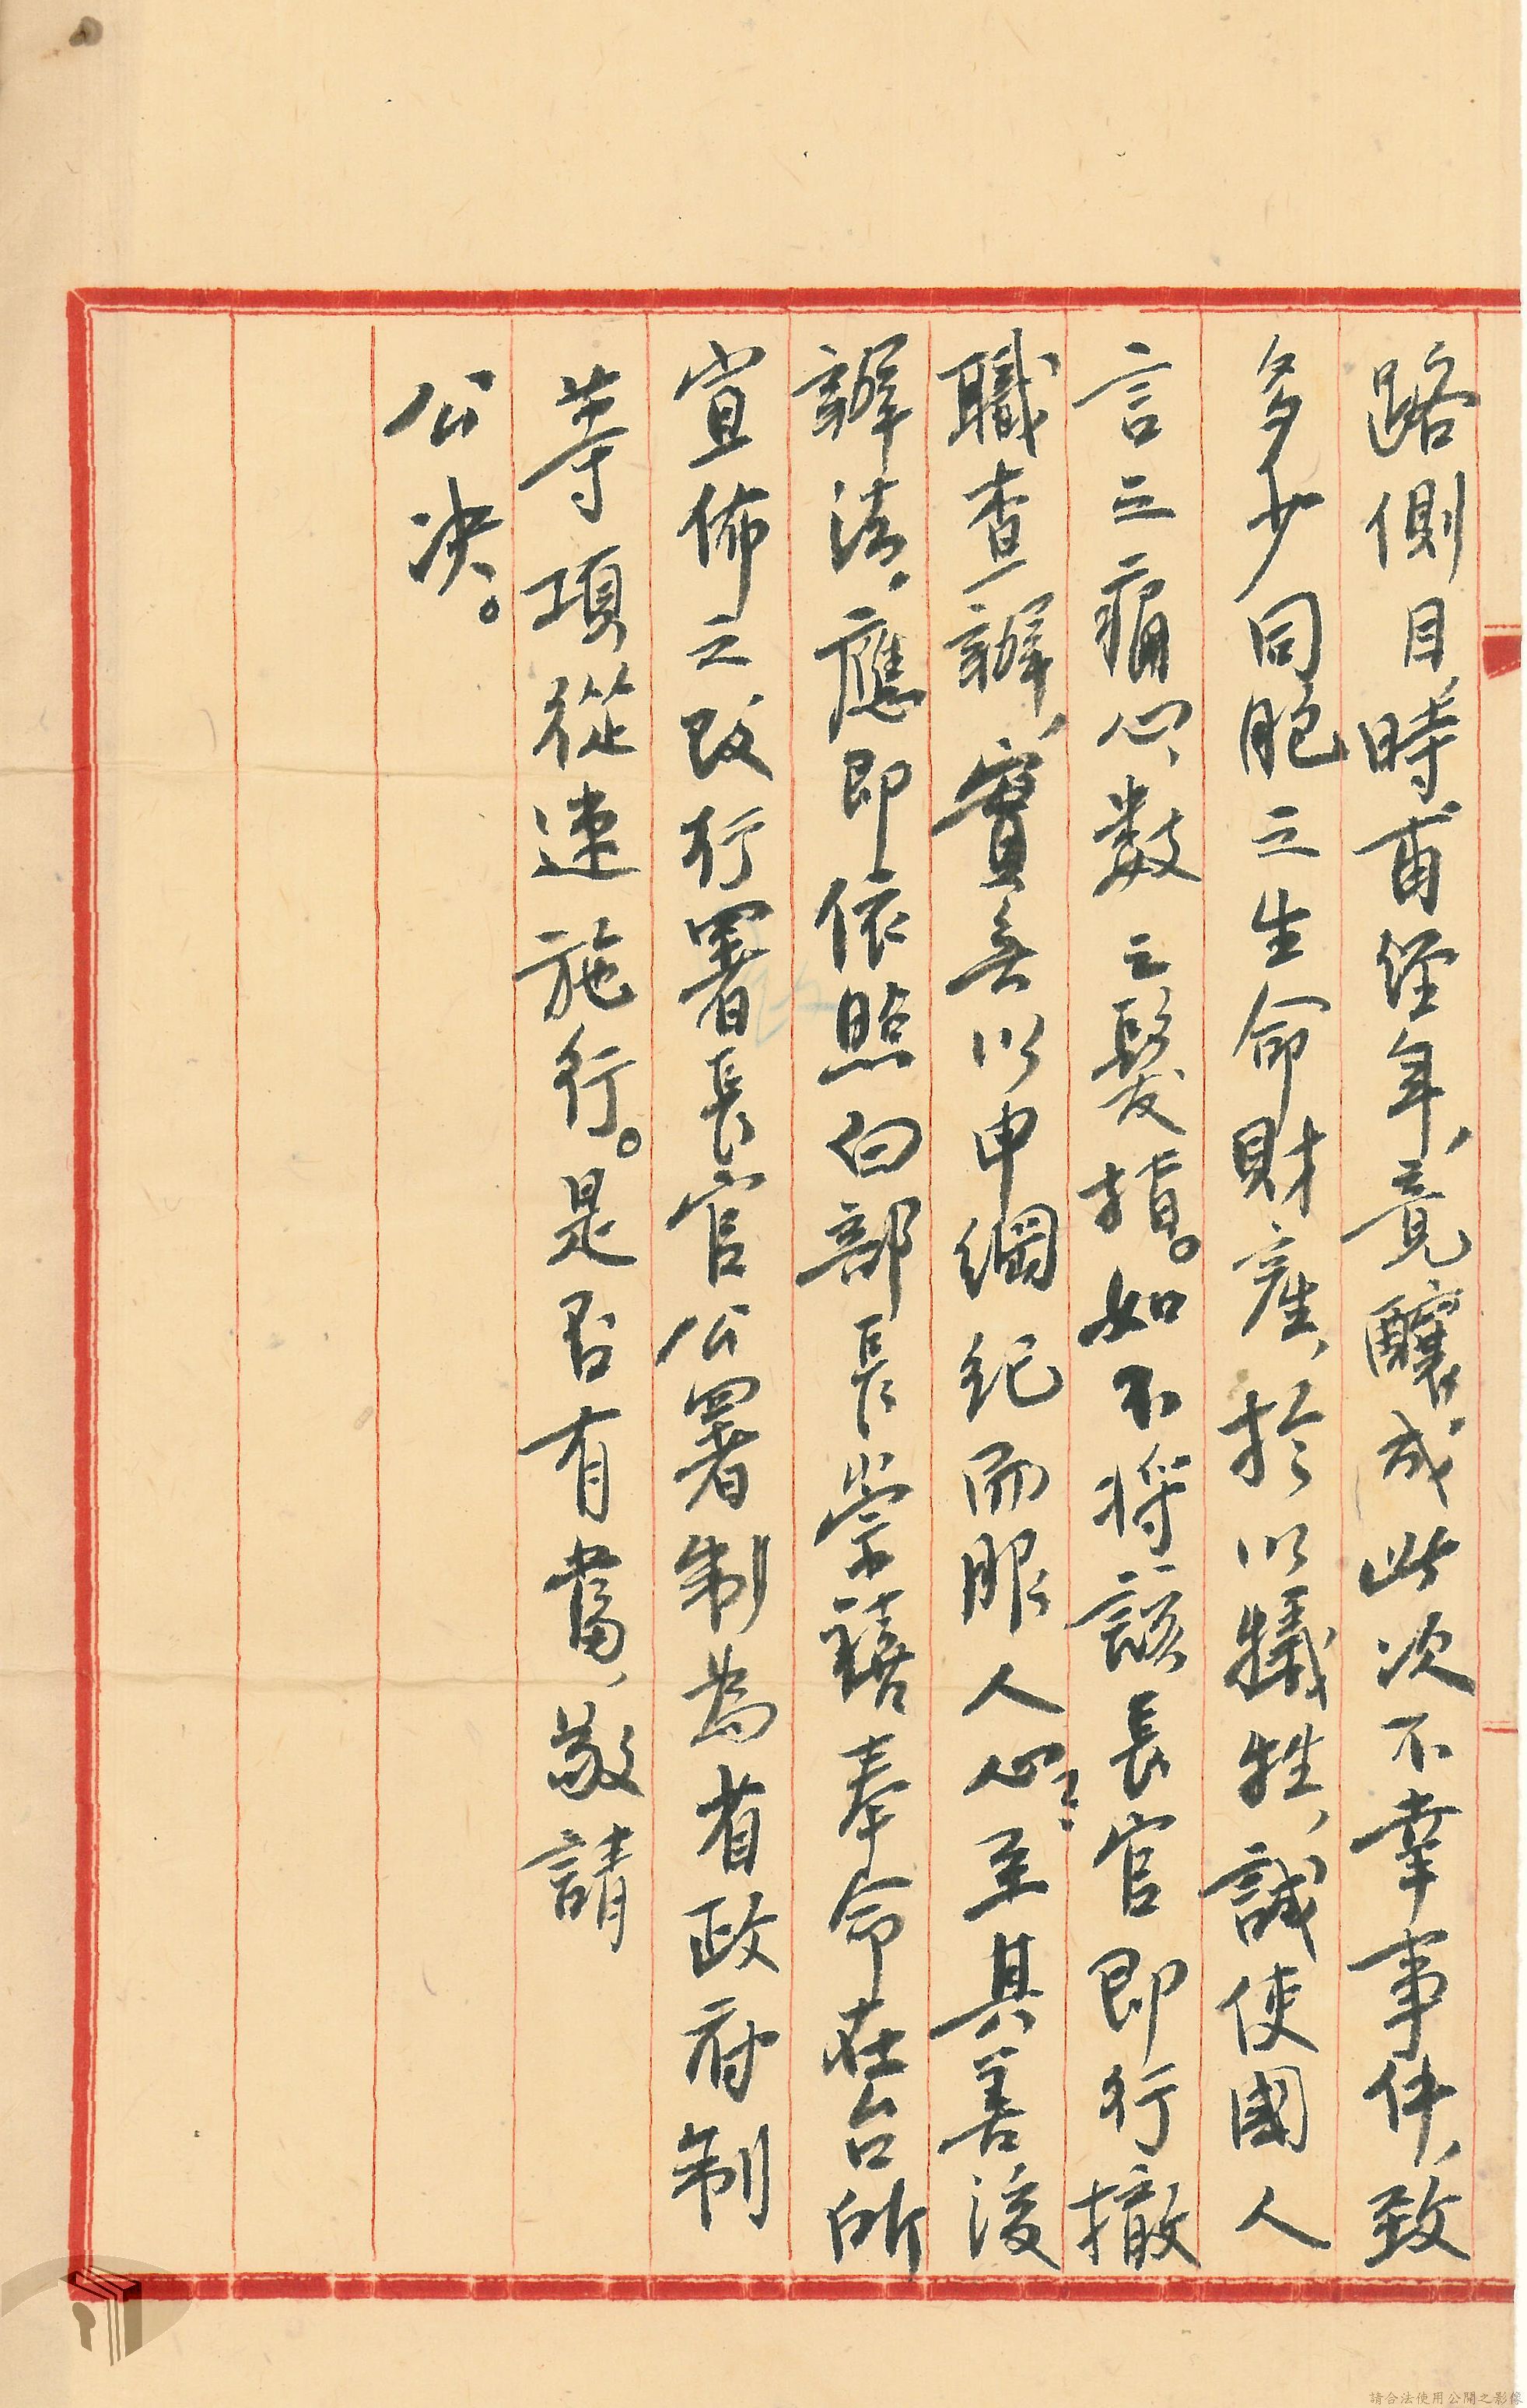 路側目、時甫經年、竟釀成此次不幸事件、致
多少同胞之生命財產、於以犧牲、誠使國人
言之痛心、数之髮指。如不将該長官即行撤
職查辦、實無以申綱纪而服人心、至其善後
辦法、應即依照白部長崇禧奉命在台所
宣佈之改行署長官公署制為省政府制
等項從速施行。是否有當、敬請
公决。
請合法使用公開之影像